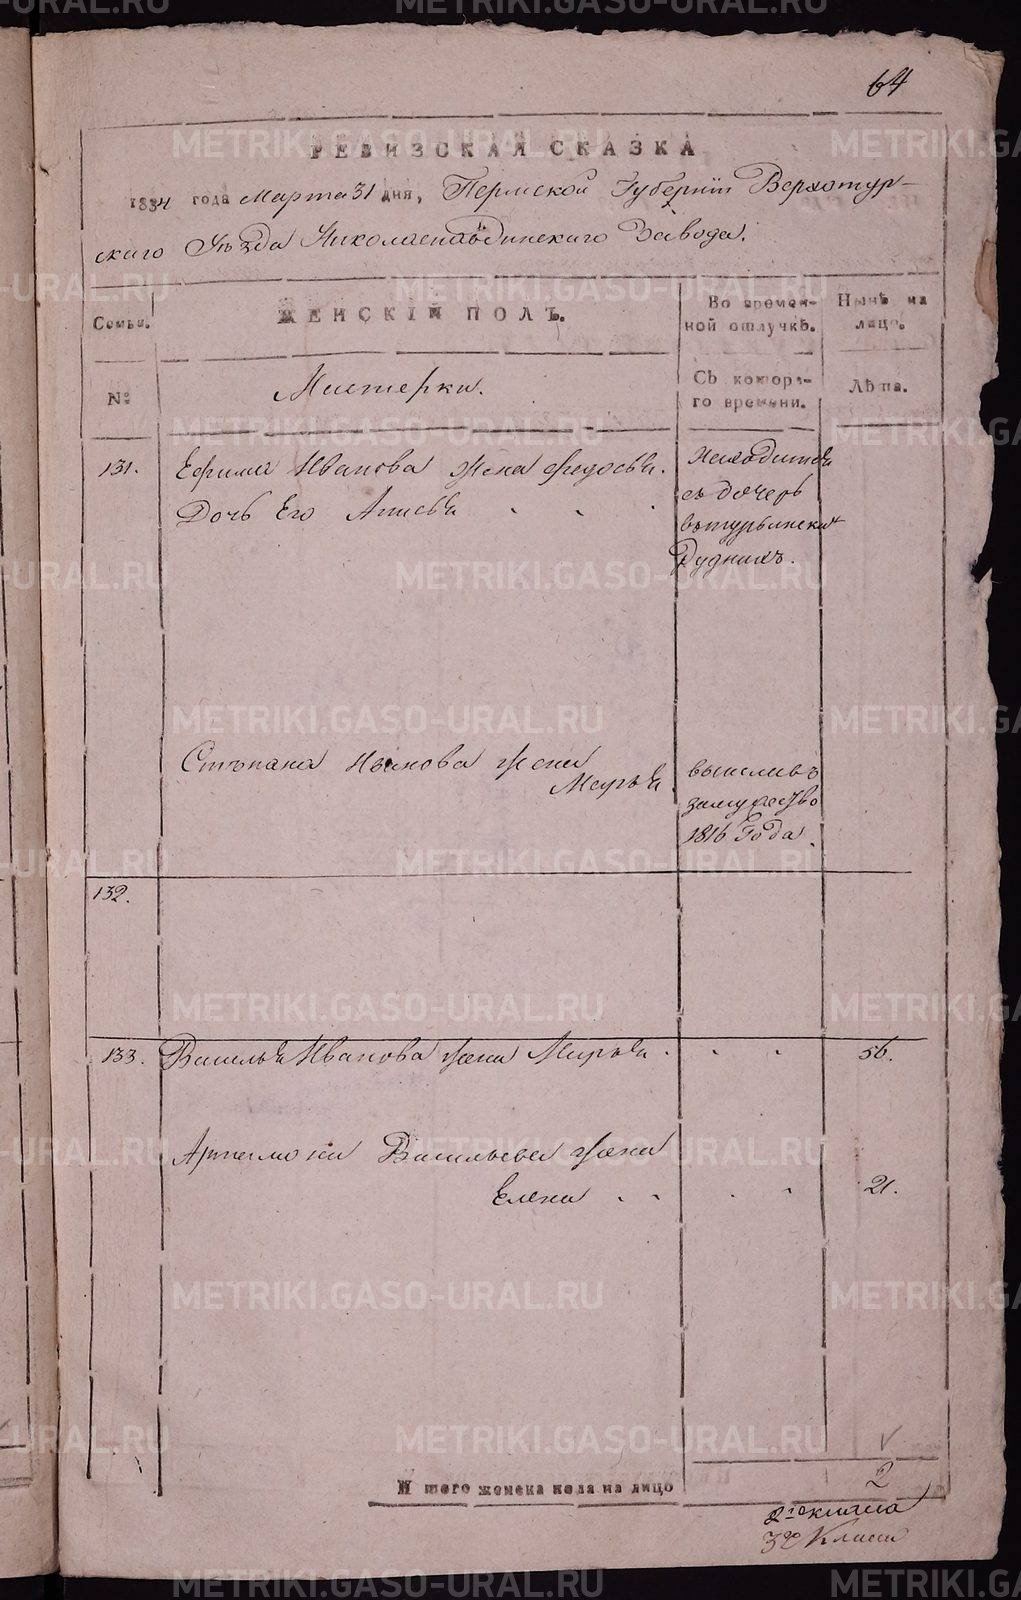 64
РЕВИЗСКАЯ СКАЗКА
1834 года Марта 31 дня, Пермской Губернїи Верхотур-
скаго Уѣзда Николаепавдинскаго Завода.
Семьи.
ЖЕНСКІЙ ПОЛЪ.
Во времен-
ной отлучкѣ.
Нынѣ на
лицо.
№
Мастерки.
Съ которо-
го времени.
Лѣта.
131.
Ефима Иванова жена Федосья.
Дочь Его
Находится
съ дочерь
в турьинских
Рудникъ.
Стѣпана Иванова жена
Марья.
замужество
1816 Года.
132.
133.
Василья Иванова жена Марья.
56.
Артемона Васильева жена
Елена
21.
И того женска пола на лицо
2
2го класса
3го Класса
METRIKI.GASO-URAL.RU